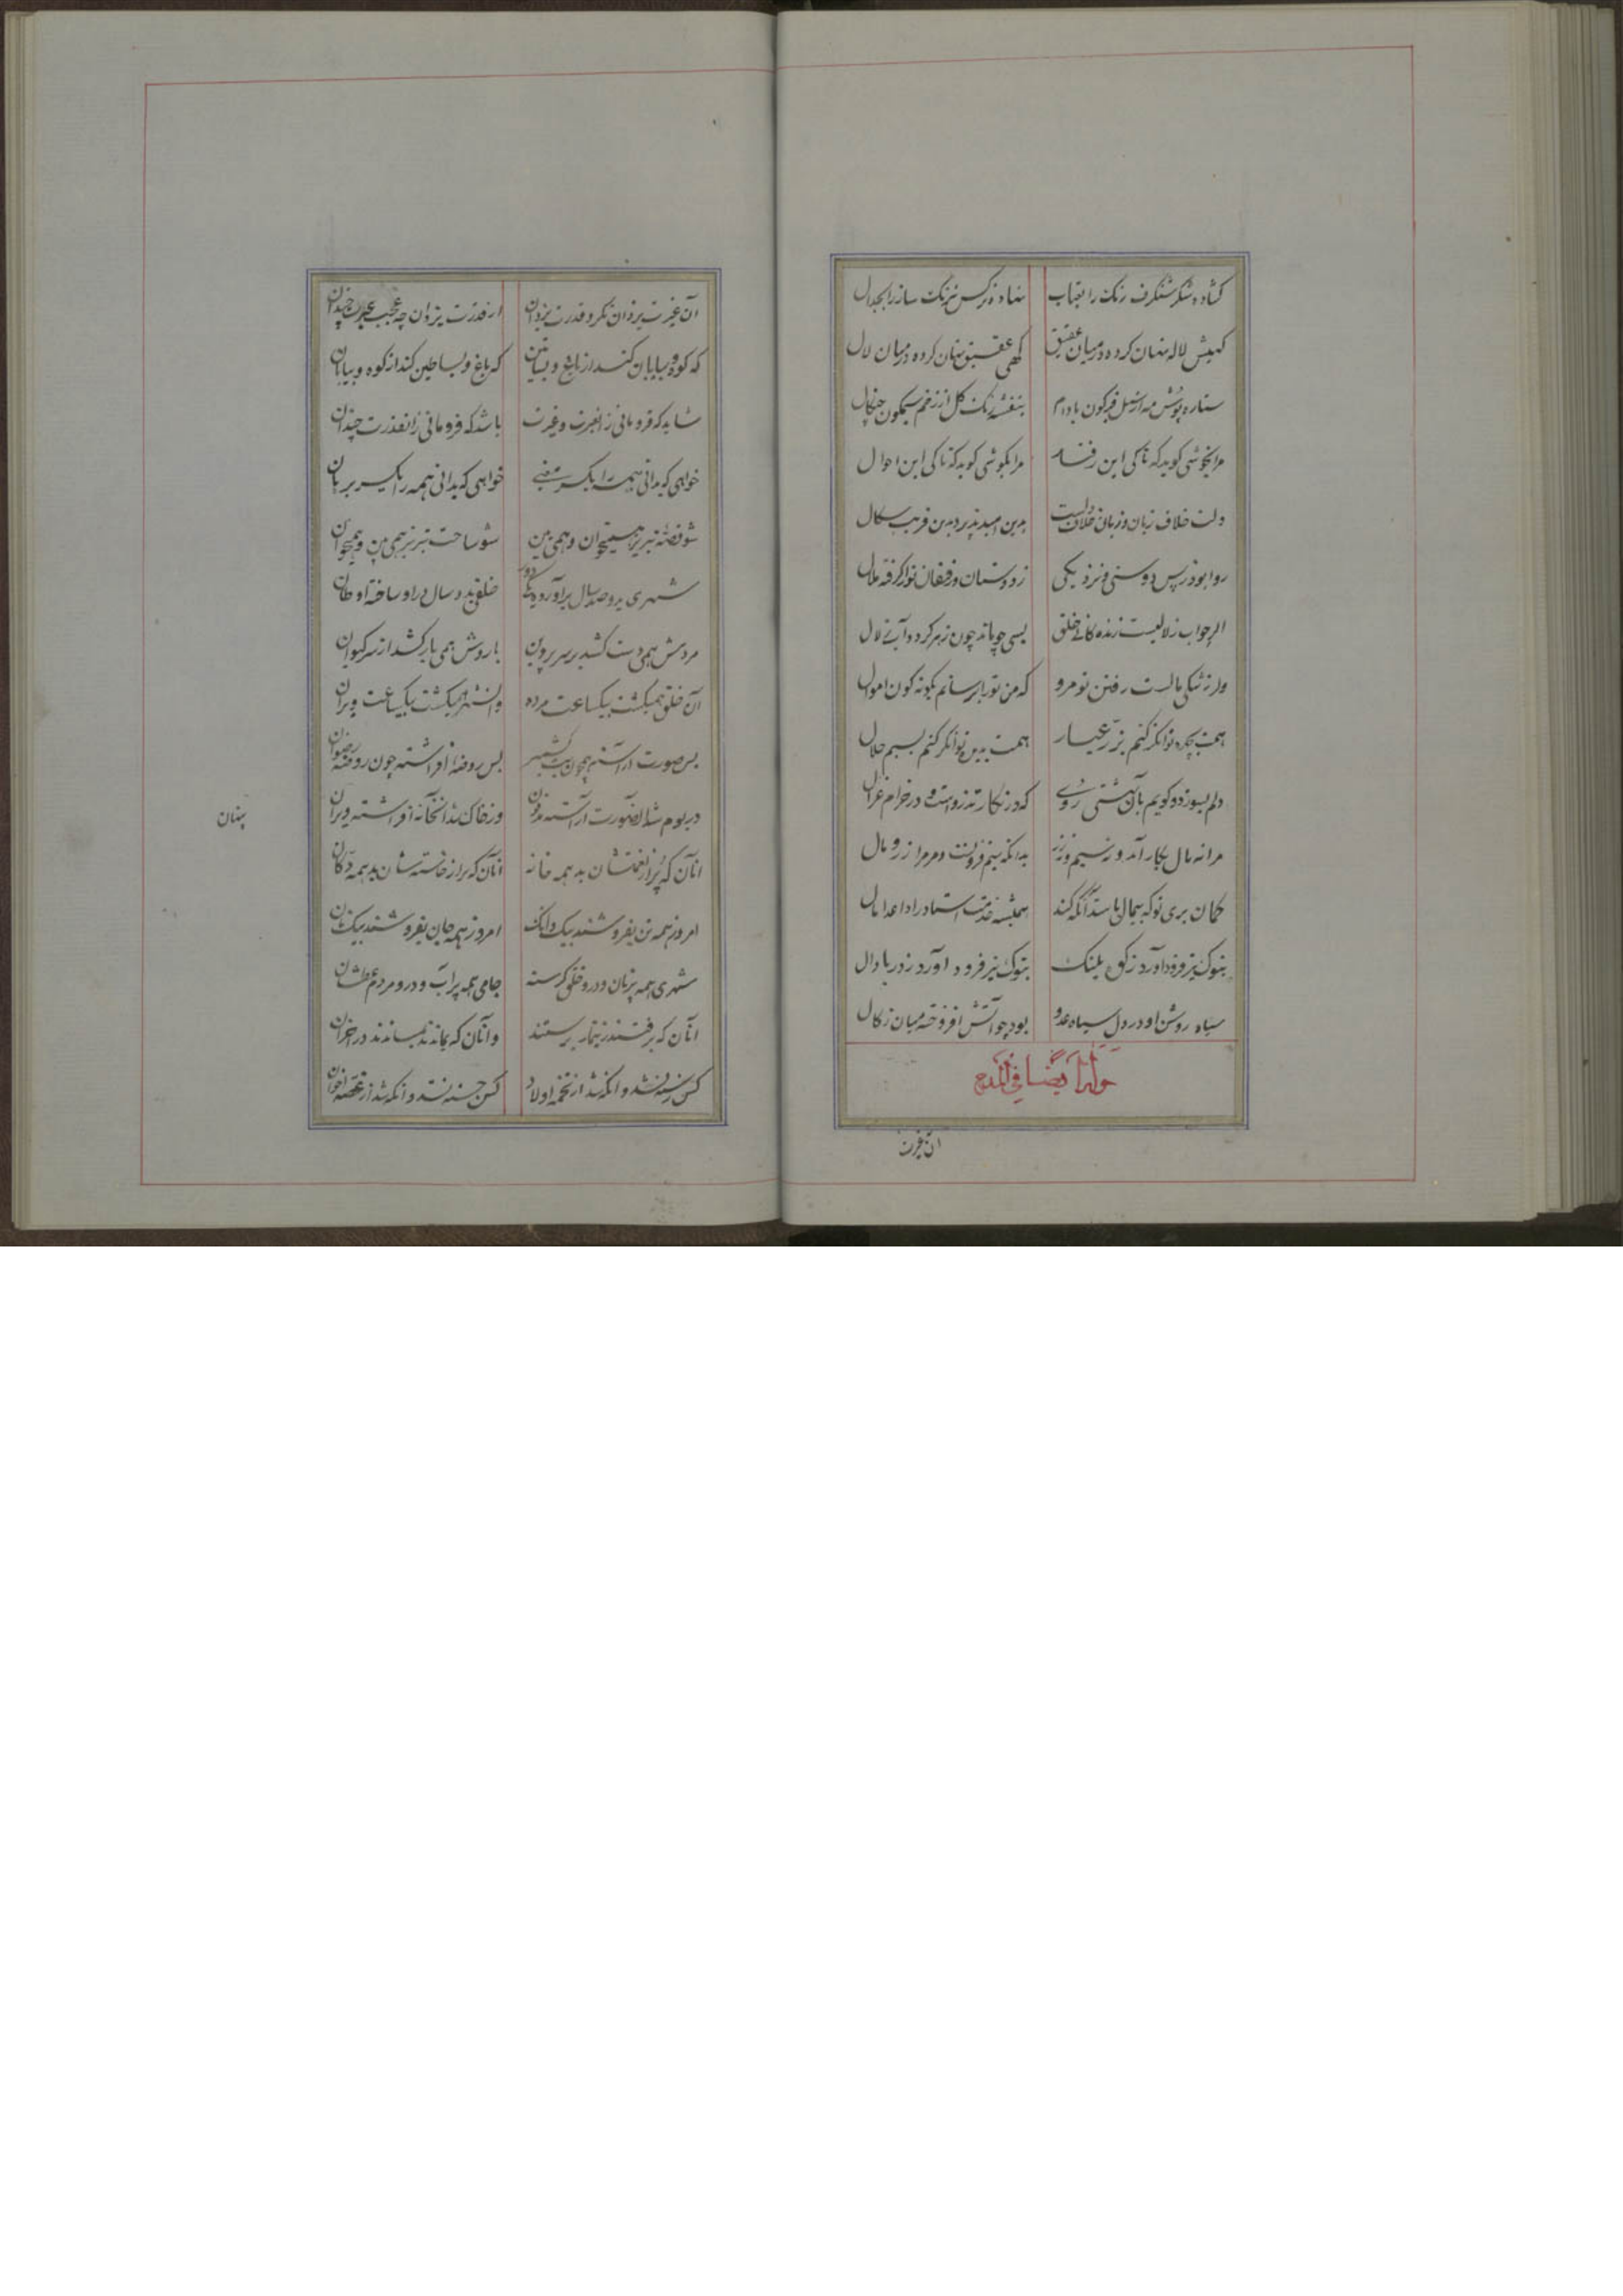 کشاده شکر شنکرف رنک را بعتاب نهاده نرکس نیرنک ساز را بجدال
کهیش لاله نهان کرده در میان عقیق کهی عقیق نهان کرده در میان لال
ستاره پوش مه از نیل قیرکون بادام بنفشه رنک کل از زخم سیمکون چنکال
مرا بخوشی کوید که تا کی این رفتار مرا بکوشی کوید که تا کی این احوال
دلت خلاف زبان و زبان خلاف دلست بدین امید پذیر و بدین فریب سکال
روا بود ز پس دوستی و نزدیکی ز دوستان و رفیقان تو را کرفته ملال
اکر جواب زلالیست زنده کانی خلق بسی چو ماند چون زهر کردد آب زلال
ور ز تنکی مالست رفتن تو مرو که من تو را برسانم بکونه کون اموال
همت بچهره توانکر کنم بزر عیار همت بدیده توانکر کنم بسیم حلال
دلم بسوزد و کویم بآن بهشتی روی که در نکار تذرو است و در خرام غزال
مرا نه مال بکار آمد و نه سیم و نه زر بدانکه سیم فزونست و مر مرا زر و مال
کمان بری تو که بیمال باشد آنکه کند همیشه خدمت استاد راد اعدا مال
بنوک نیزه فرود آورد ز کوه پلنک بنوک تیر فرود آورد ز دریا دال
سپاه روشن او در دل سیاه عدو بود چو آتش افروخته میان زکال
وله ایضا فی المدح
آن غیرت
آن غیرت یزدان نکر و قدرت یزدان از قدرت یزدان چه عجب غیرت چندان
که کوه و بیابان کند از باغ و بساتین که باغ و بساطین کند از کوه و بیابان
شاید که فرو مانی زان عبرت و غیرت باشد که فرو مانی زانقدرت چندان
خواهی که بدانی همه را یکسر معنی خواهی که بدانی همه را یکسر برهان
شو قصه تبریز همیخوان و همی بین شو ساحت تبریز همی بین و همیخوان
شهری بدو صد سال برآورده خلقی بدو سال در او ساخته اوطان
مردمش همی دست کشد بر سر پروین باروش همی بار کشد از سر کیوان
آن خلق همیکشت بیکساعت مرده وانشهر همیکشت بیکساعت ویران
بس صورت آراسته همچون بت کشمیر بس روضه افراشته چون روضه رضوان
در بوم شد انصورت آراسته مدفون وز خاک شد انخانه افراشته ویران
آنان که پر از نعمتشان بد همه خانه آنان که پر از خاسته شان بد همه دکان
امروز همه تن بفروشند بیک دانک امروز همه جان بفروشند بیک نان
شهری همه پر نان و درو خلق کرسنه جامی همه پر آب و درو مردم عطشان
آنان که برفتند ز تیمار برستند وآنان که بماندند بماندند در احزان
کس نشد وانکه شد از اولاد کس خسته نشد وانکه شد از غصه اخوان
پنهان